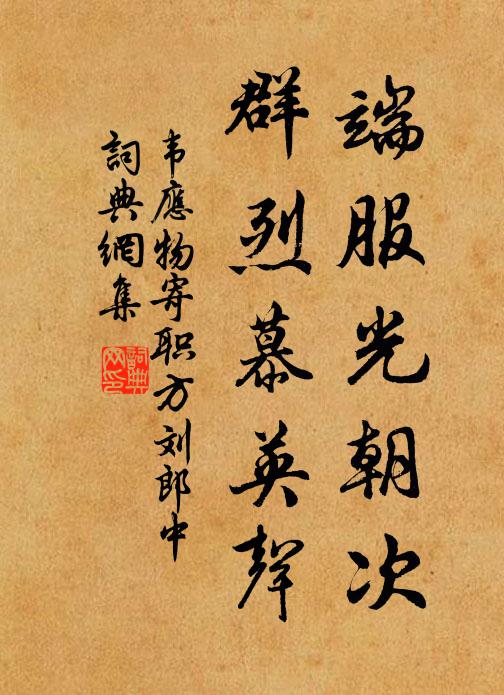 端服光朝次
群烈慕英聲
韦應物寄职方刘郎中
詞典網集
詞典網印